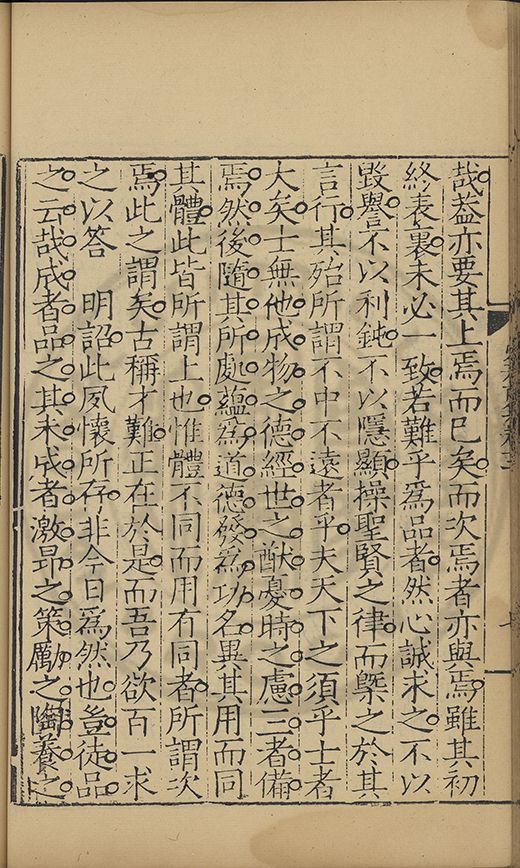 哉蓋亦要其上焉而已矣而次焉者亦與焉雖其初
終表裏未必一致若難乎爲品者然心誠求之不以
毀譽不以利鈍不以隱顯操聖賢之律而槩之於其
言行其殆所謂不中不遠者乎夫天下之須乎士者
大矣士無他成物之德經世之猷憂時之慮三者備
焉然後隨其所處蘊爲道德發爲功名異其用而同
其體此皆所謂上也惟體不同而用有同者所謂次
焉此之謂矣古稱才難正在於是而吾乃欲百一求
之以答　明詔此夙懷所存非今日爲然也豈徒品
之云哉成者品之其未成者激昂之策厲之陶養之